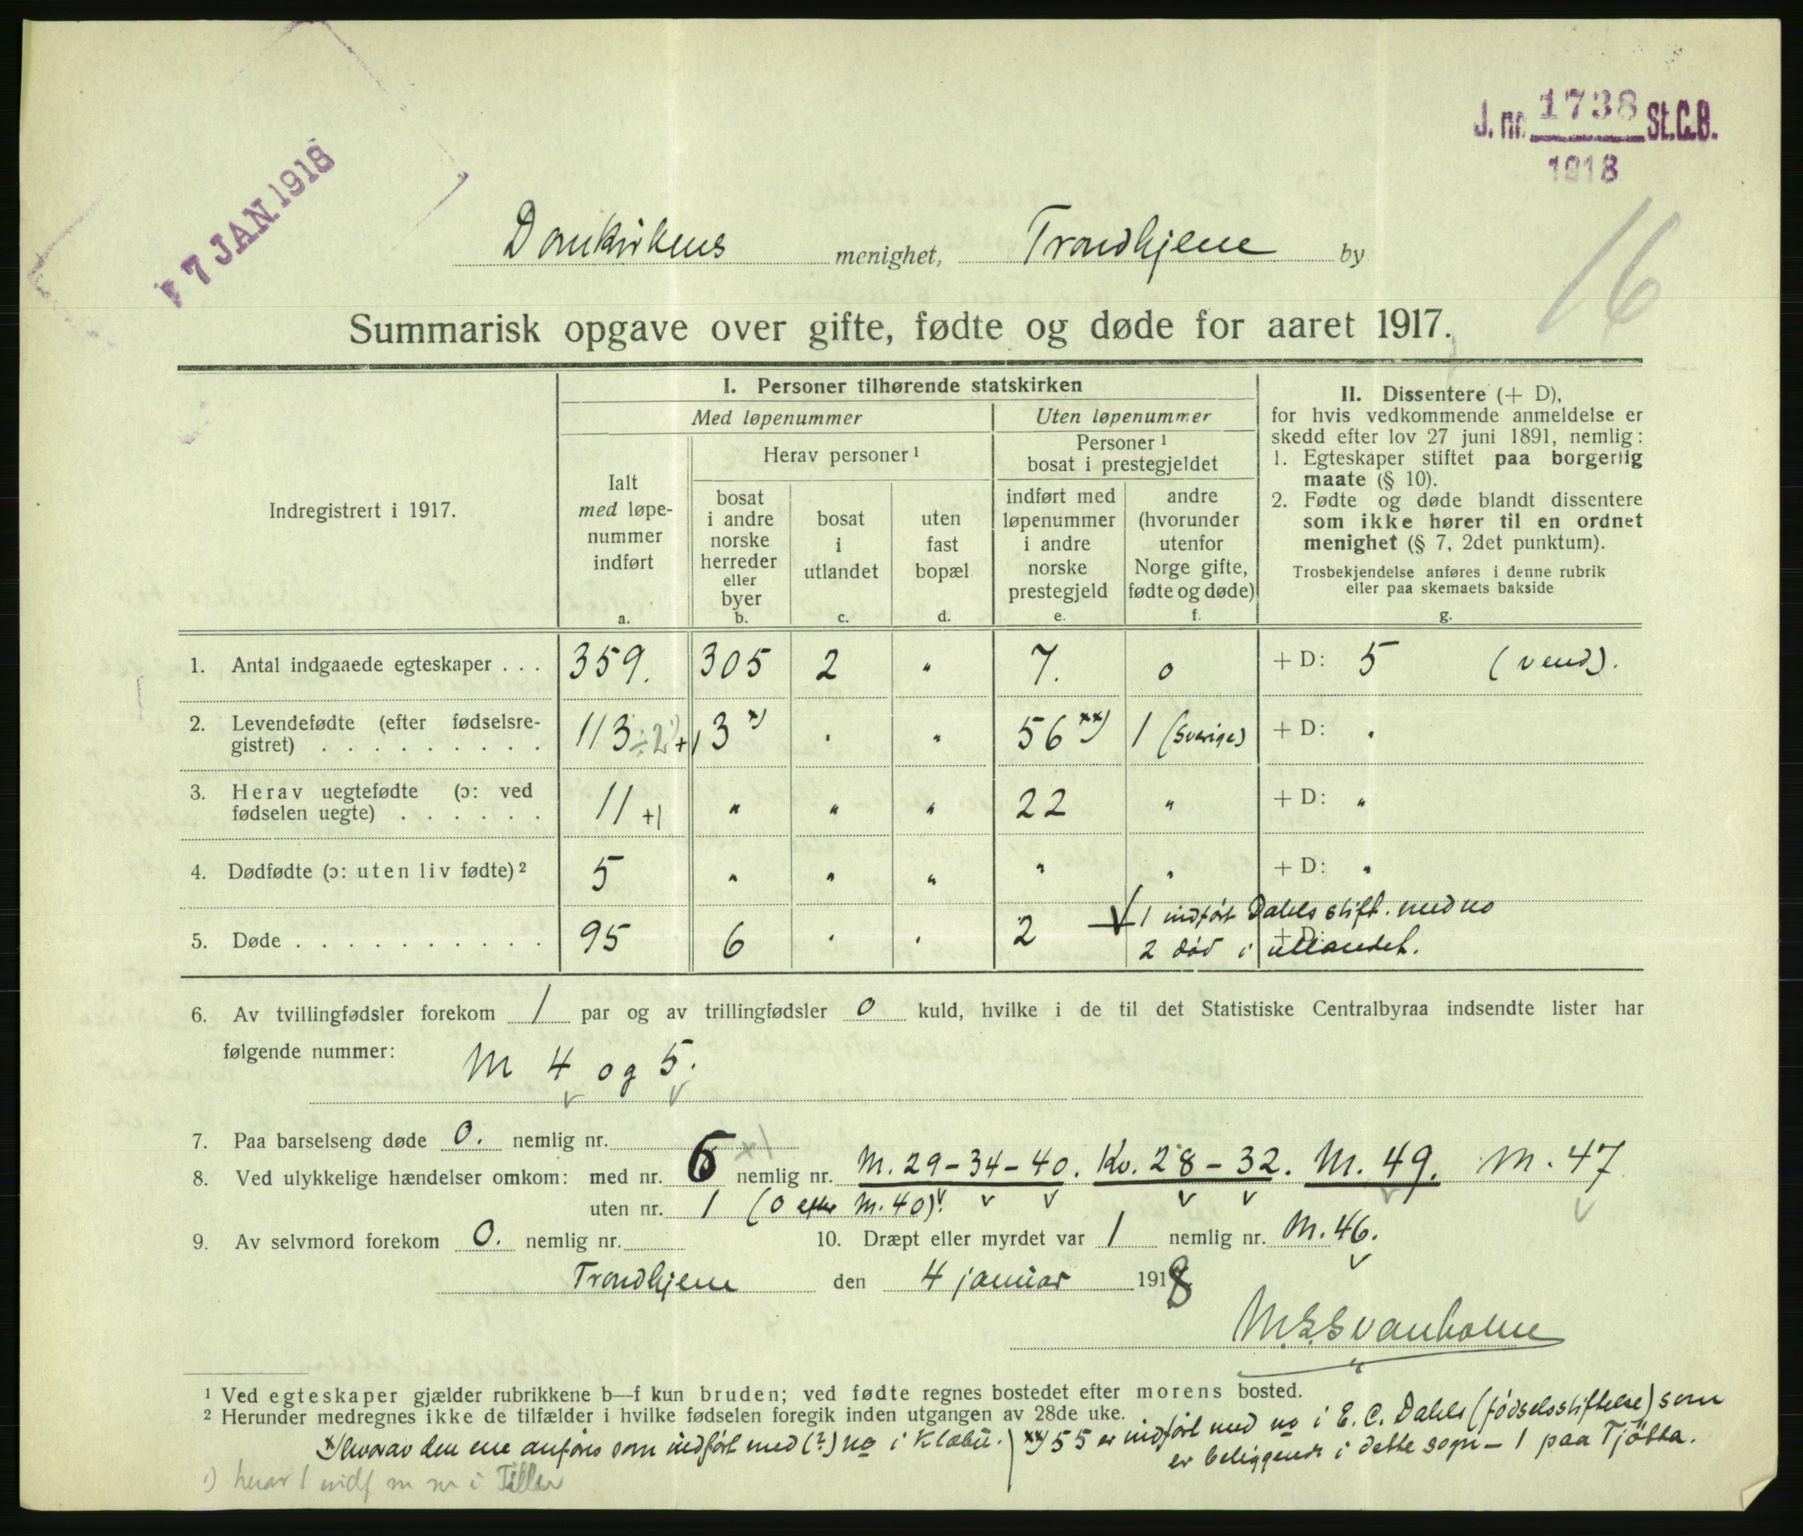 J. nr. 1738 St.C.B.
1918
7 JAN. 1918
16
Domkirkens menighet, Trondhjem by
Summarisk opgave over gifte, fødte og døde for aaret 1917.
Indregistrert i 1917.
I. Personer tilhørende statskirken
Med løpenummer
Uten løpenummer
Ialt
med løpe-
nummer
indført
a.
Herav personer 1
bosat
i andre
norske
herreder
eller
byer
b.
bosat
i
utlandet
c.
uten
fast
bopæl
d.
Personer 1
bosat i prestegjeldet
indført med
løpenummer
i andre
norske
prestegjeld
e.
andre
(hvorunder
utenfor
Norge gifte,
fødte og døde)
f.
II. Dissentere (+ D),
for hvis vedkommende anmeldelse er
skedd efter lov 27 juni 1891, nemlig:
1. Egteskaper stiftet paa borgerlig
maate (§ 10).
2. Fødte og døde blandt dissentere
som ikke hører til en ordnet
menighet (§ 7, 2det punktum).
Trosbekjendelse anføres i denne rubrik
eller paa skemaets bakside
g.
1. Antal indgaaede egteskaper . . . 359. 305 2 " 7. 0 + D: 5 (vend).
2. Levendefødte (efter fødselsre-
gistret) . . . . . . . . . 113 ÷2 1) +1 3 x) . " 56 xx) 1 (Sverige) + D: .
3. Herav uegtefødte (ɔ: ved
fødselen uegte) . . . . . . 11 +1 " " " 22 " + D: "
4. Dødfødte (ɔ: uten liv fødte) 2 5 " " " " " + D: "
5. Døde . . . . . . . . . . 95 6 . . 2 1 indført Dahls stift. med no
+ D:
2 død i utlandet.
6. Av tvillingfødsler forekom 1 par og av trillingfødsler 0 kuld, hvilke i de til det Statistiske Centralbyraa indsendte lister har
følgende nummer:
M 4 og 5.
7. Paa barselseng døde 0. nemlig nr.
8. Ved ulykkelige hændelser omkom: med nr. 6 nemlig nr. M. 29 – 34 – 40. Kv. 28 – 32. M. 49. M. 47
uten nr. 1 (0 efter M. 40).
9. Av selvmord forekom 0. nemlig nr.
10. Dræpt eller myrdet var 1 nemlig nr. M. 46.
Trondhjem den 4 januar 1918
Svanholm
1 Ved egteskaper gjælder rubrikkene b—f kun bruden; ved fødte regnes bostedet efter morens bosted.
2 Herunder medregnes ikke de tilfælder i hvilke fødselen foregik inden utgangen av 28de uke.
x) hvorav den ene anføres som indført med (?) no i Klæbu.
xx) 55 er indført med no i E. C. Dahls (fødselsstiftelse) som
er beliggende i dette sogn – 1 paa Tjøtta.
1) hvorav 1 indf m nr i Tiller